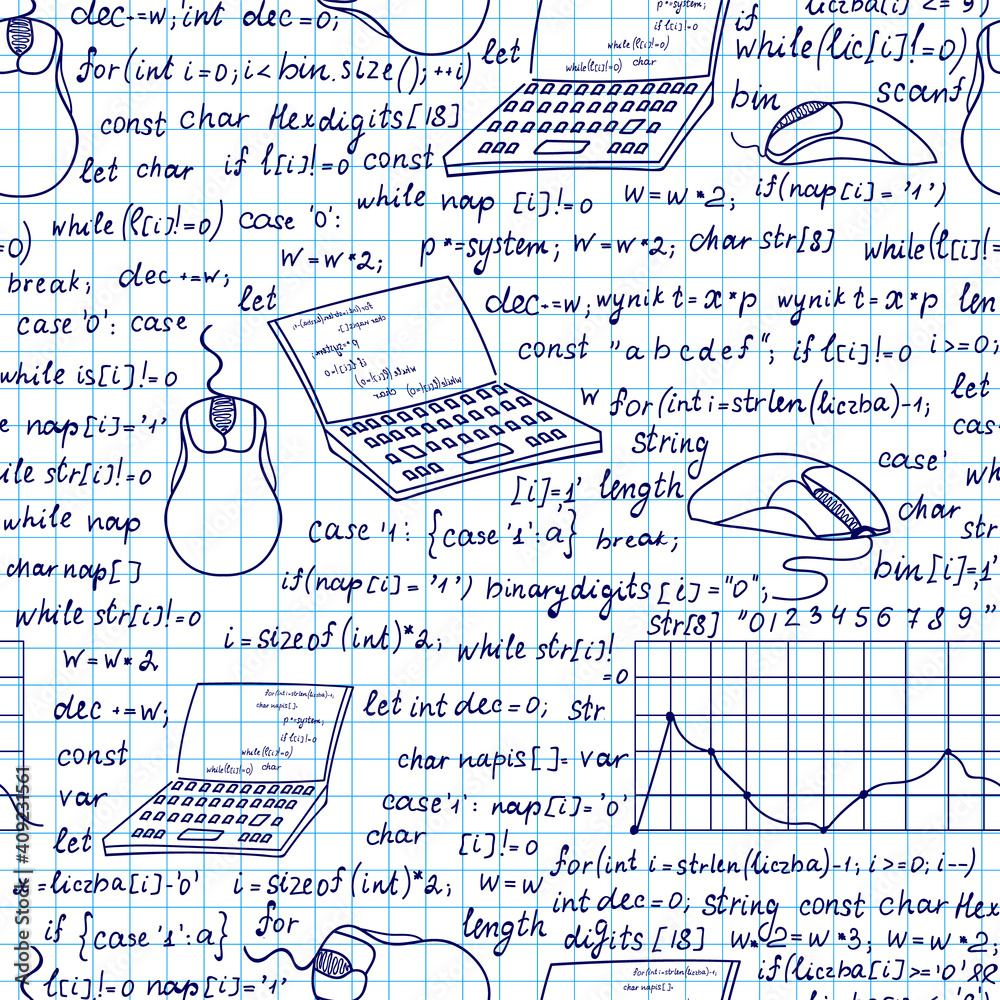 dec-=w; int dec=0;
for(int i=0; i< bin.size(); ++i)
const char Hexdigits[18]
let char if l[i]!=0 const
let
p*=system;
if l[i]!=0
while(l[i]!=0)
while(l[i]!=0) char
if
while(lic[i]!=0)
bin scanf
while nap [i]!=0 w=w*2; if(nap[i]= '1')
while(l[i]!=0) case '0':
=0) w=w*2; p*=system; w=w*2; char str[8] while(l[i]!=
break; dec +=w;
let dec-=w; wynik t=x*p wynik t=x*p len
case '0': case
const "abcdef"; if l[i]!=0 i>=0;
while is[i]!=0
w for(int i=strlen(liczba)-1; let
nap[i]='1' cas
string
str[i]!=0 case'
[i]=,1' length
while nap char
case '1: {case '1':a} break; str
char nap[] bin[i]=,1'
if(nap[i]= '1') binarydigits[i]="0";
while str[i]!=0
str[8] "0123456789"
i=sizeof(int)*2; while str[i]!
=0
w=w*2
for(int i=strlen(liczba)-1,
char napis[]-
p*=system;
if l[i]!=0
while(l[i]!=0)
while(l[i]!=0) char
dec +=w; let int dec=0; str
const char napis[]= var
var case'1': nap[i]='0'
let char [i]!=0
for(int i=strlen(liczba)-1; i>=0; i--)
=liczba[i]-'0' i=sizeof(int)*2; w=w
int dec=0; string const char Hex
if {case '1':a} for length
digits[18] w*2=w*3; w=w*2;
l[i]!=0 nap[i]='1'
for(int i=strlen(liczba)-1,
char napis[]-
if(liczba[i]>='0'&&
Adobe Stock | #409231561